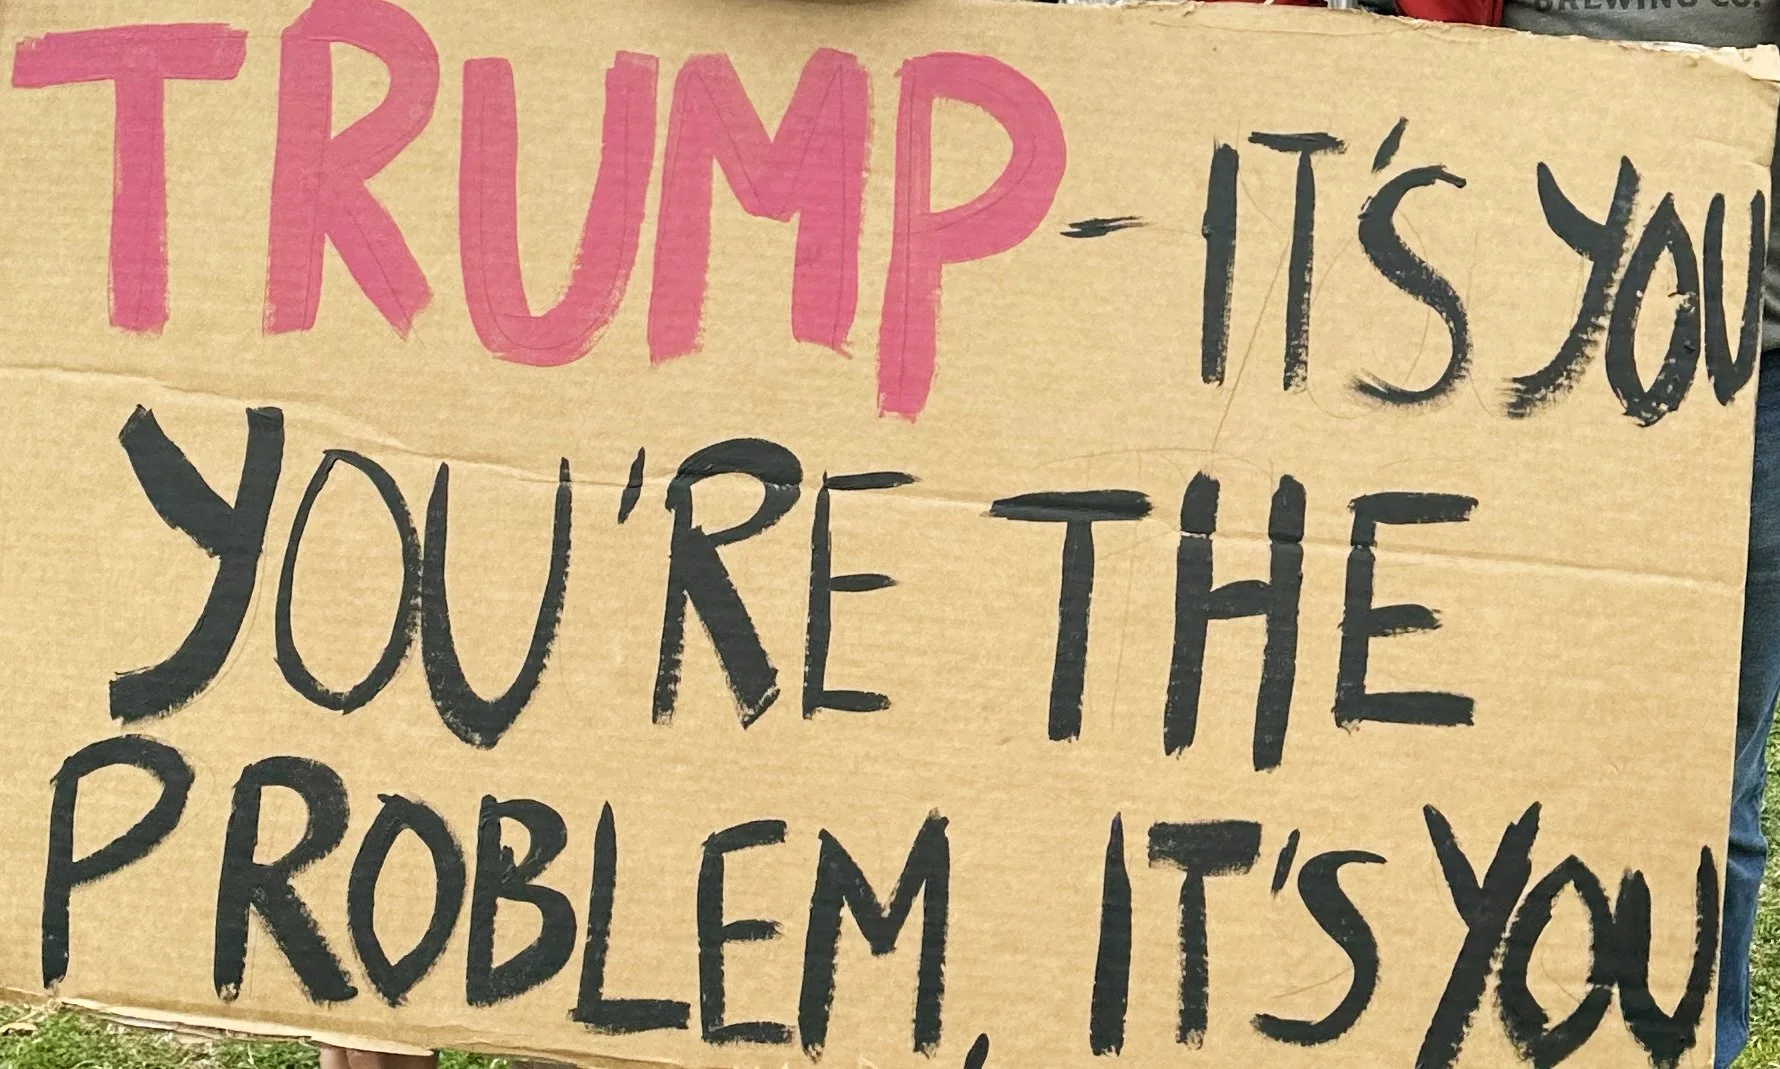 BREWING CO.
TRUMP - IT'S YOU
YOU'RE THE
PROBLEM, IT'S YOU